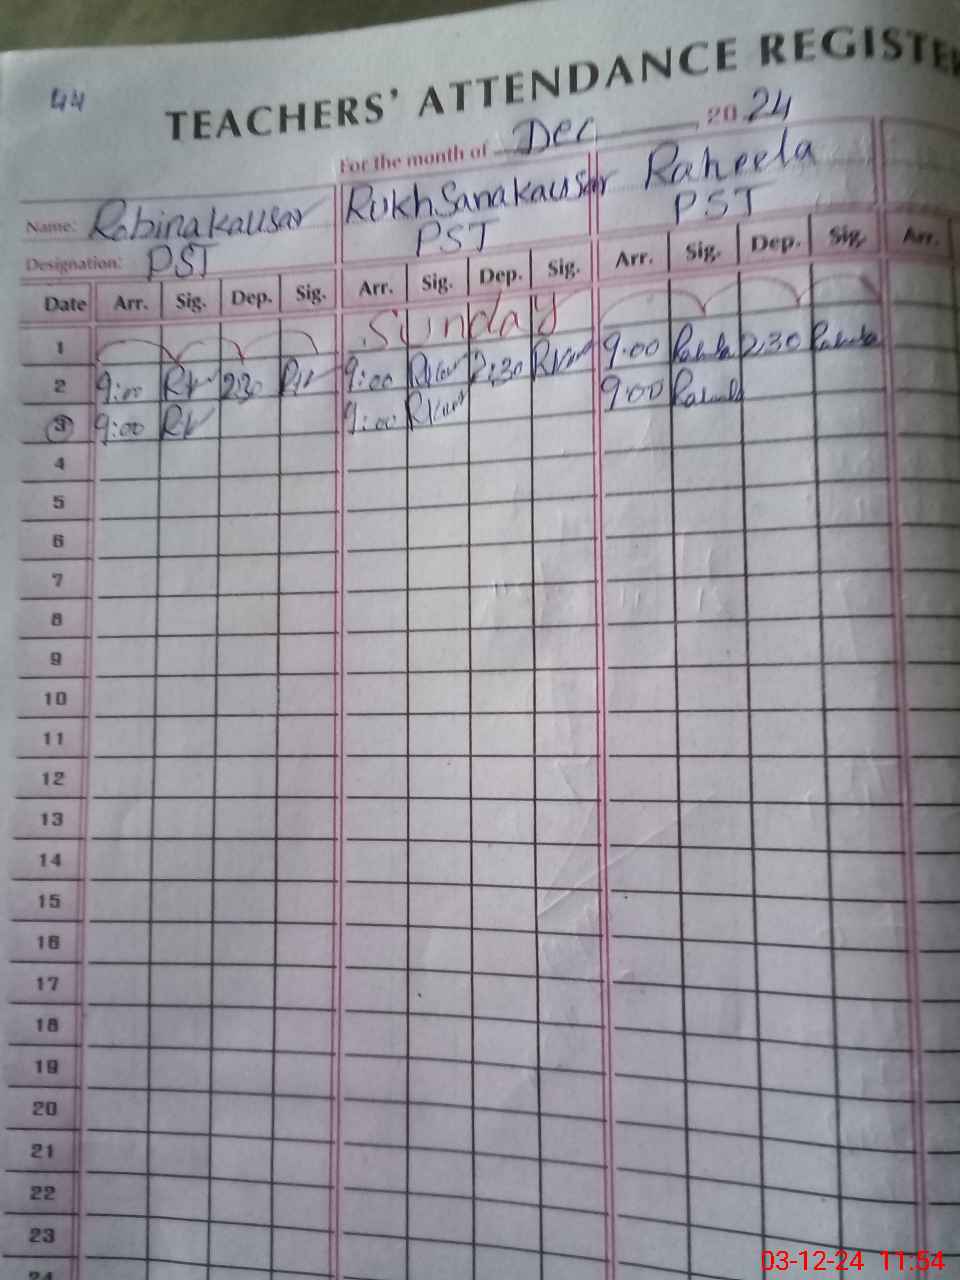 44
TEACHERS' ATTENDANCE REGISTE
For the month of Dec 2024
Name: Robina kausar Rukhsana kausar Raheela
Designation: PST PST PST
Date Arr. Sig. Dep. Sig. Arr. Sig. Dep. Sig. Arr. Sig. Dep. Sig. Arr.
1 Sunday
2 9:00 RK 2:30 RK 9:00 RKausr 2:30 RKausr 9.00 Raheela 2.30 Raheela
3 9:00 RK 9:00 RKausr 9:00 Raheela
4
5
6
7
8
9
10
11
12
13
14
15
16
17
18
19
20
21
22
23
24
03-12-24 11:54